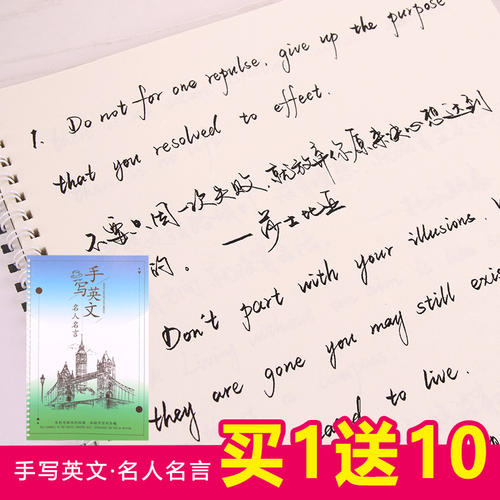 1. Do not for one repulse, give up the purpose
that you resolved to effect.
不要只因一次失败,就放弃你原来决心想达到
的。 —莎士比亚
Don't part with your illusions.
they are gone you may still exis
to live.
手写英文
名人名言
手写英文·名人名言
买1送10